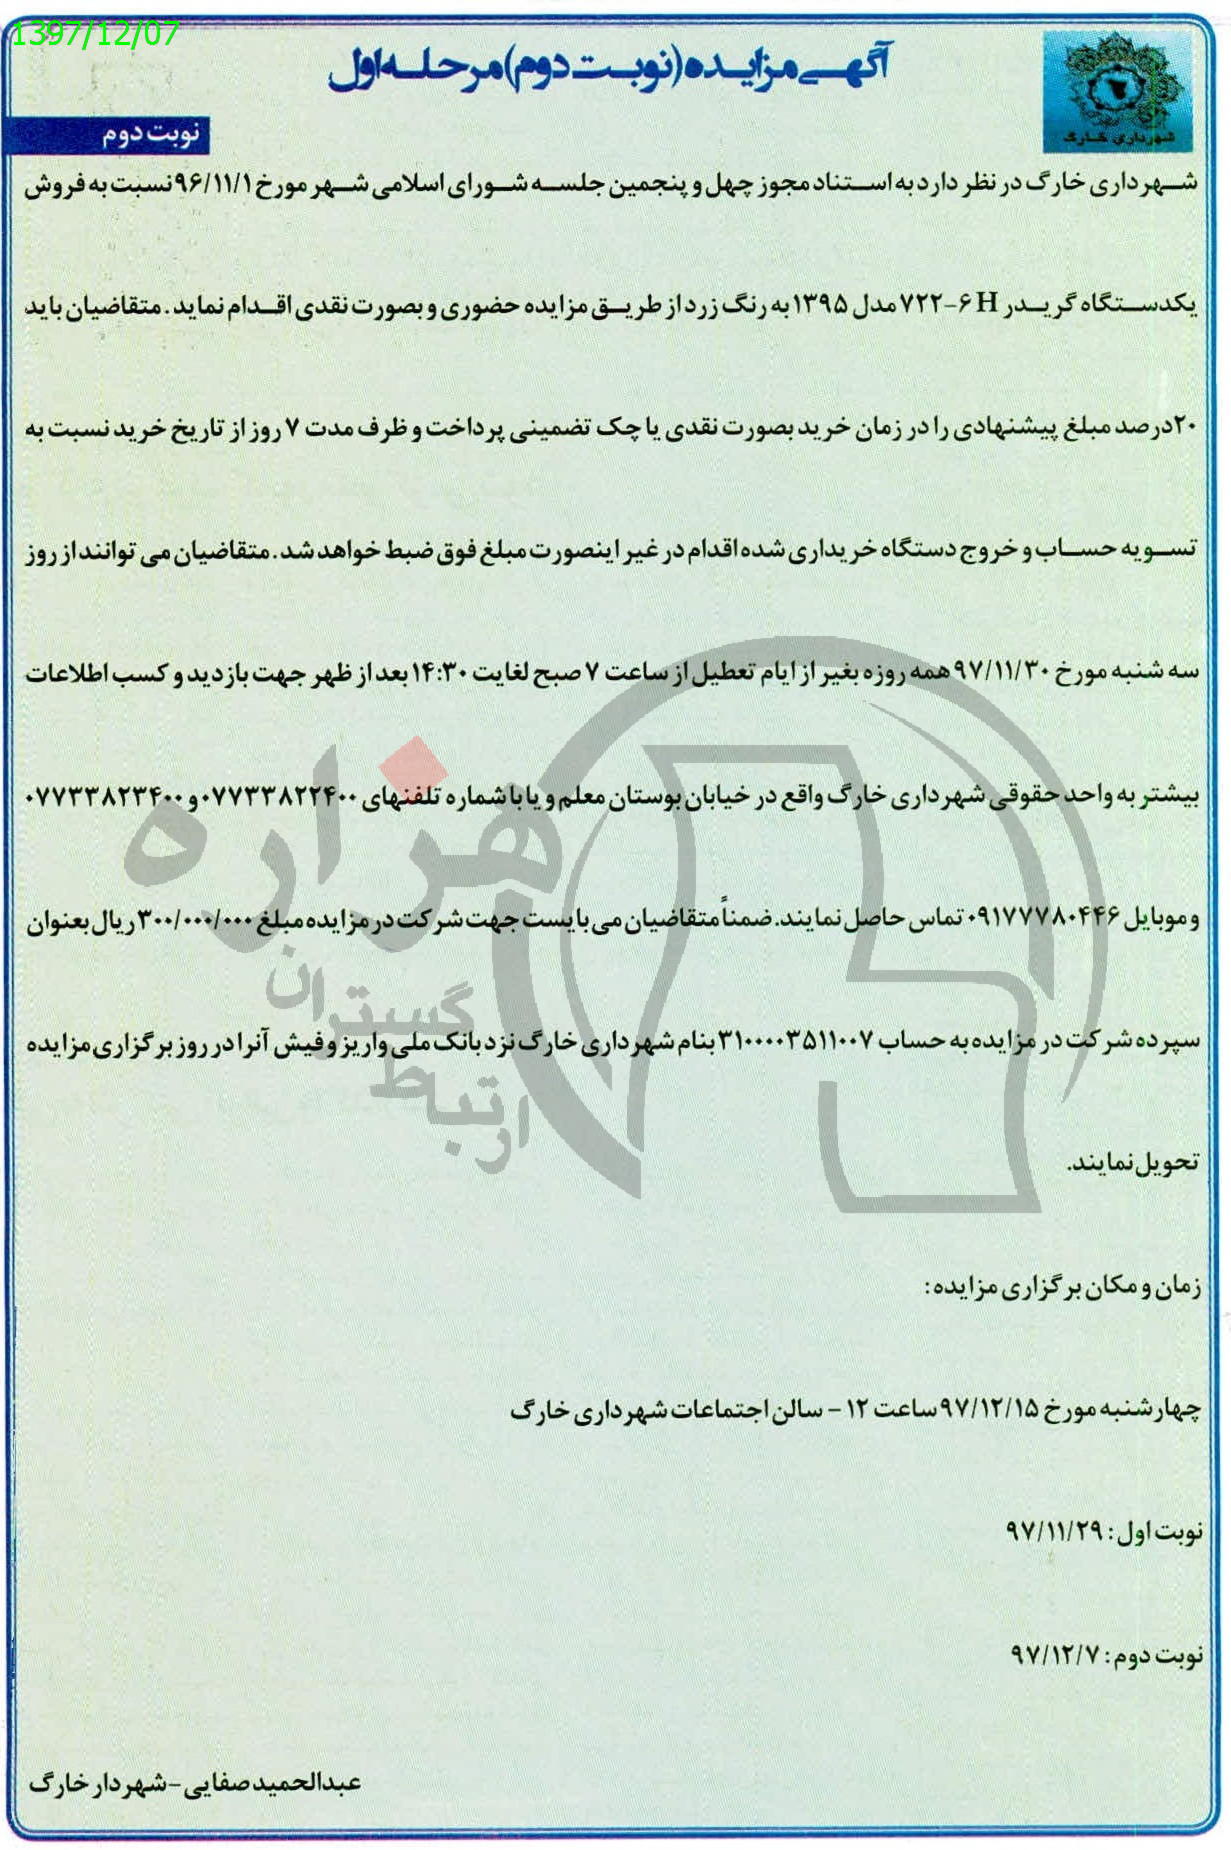 1397/12/07
آگهی مزایده (نوبت دوم) مرحله اول
شهرداری خارگ
نوبت دوم
شهرداری خارگ در نظر دارد به استناد مجوز چهل و پنجمین جلسه شورای اسلامی شهر مورخ ۹۶/۱۱/۱ نسبت به فروش
یکدستگاه گریدر ۷۲۲-۶ H مدل ۱۳۹۵ به رنگ زرد از طریق مزایده حضوری و بصورت نقدی اقدام نماید. متقاضیان باید
۲۰درصد مبلغ پیشنهادی را در زمان خرید بصورت نقدی یا چک تضمینی پرداخت و ظرف مدت ۷ روز از تاریخ خرید نسبت به
تسویه حساب و خروج دستگاه خریداری شده اقدام در غیر اینصورت مبلغ فوق ضبط خواهد شد. متقاضیان می توانند از روز
سه شنبه مورخ ۹۷/۱۱/۳۰ همه روزه بغیر از ایام تعطیل از ساعت ۷ صبح لغایت ۱۴:۳۰ بعد از ظهر جهت بازدید و کسب اطلاعات
بیشتر به واحد حقوقی شهرداری خارگ واقع در خیابان بوستان معلم و یا با شماره تلفنهای ۰۷۷۳۳۸۲۲۴۰۰ و ۰۷۷۳۳۸۲۳۴۰۰
و موبایل ۰۹۱۷۷۷۸۰۴۴۶ تماس حاصل نمایند. ضمناً متقاضیان می بایست جهت شرکت در مزایده مبلغ ۳۰۰/۰۰۰/۰۰۰ ریال بعنوان
سپرده شرکت در مزایده به حساب ۳۱۰۰۰۰۳۵۱۱۰۰۷ بنام شهرداری خارگ نزد بانک ملی واریز و فیش آنرا در روز برگزاری مزایده
تحویل نمایند.
زمان و مکان برگزاری مزایده:
چهارشنبه مورخ ۹۷/۱۲/۱۵ ساعت ۱۲ - سالن اجتماعات شهرداری خارگ
نوبت اول: ۹۷/۱۱/۲۹
نوبت دوم: ۹۷/۱۲/۷
عبدالحمید صفایی-شهردار خارگ
هزاره
گستران
ارتباط